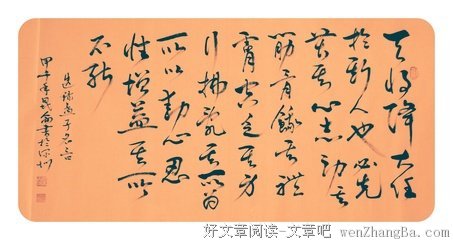 天将降大任
於斯人也必先
苦其心志劳其
筋骨餓其體
膚空乏其身
行拂乱其所为
所以动心忍
性增益其所
不能
选录孟子名言
甲午年书於深圳
好文章阅读-文章吧 wenZhangBa.com